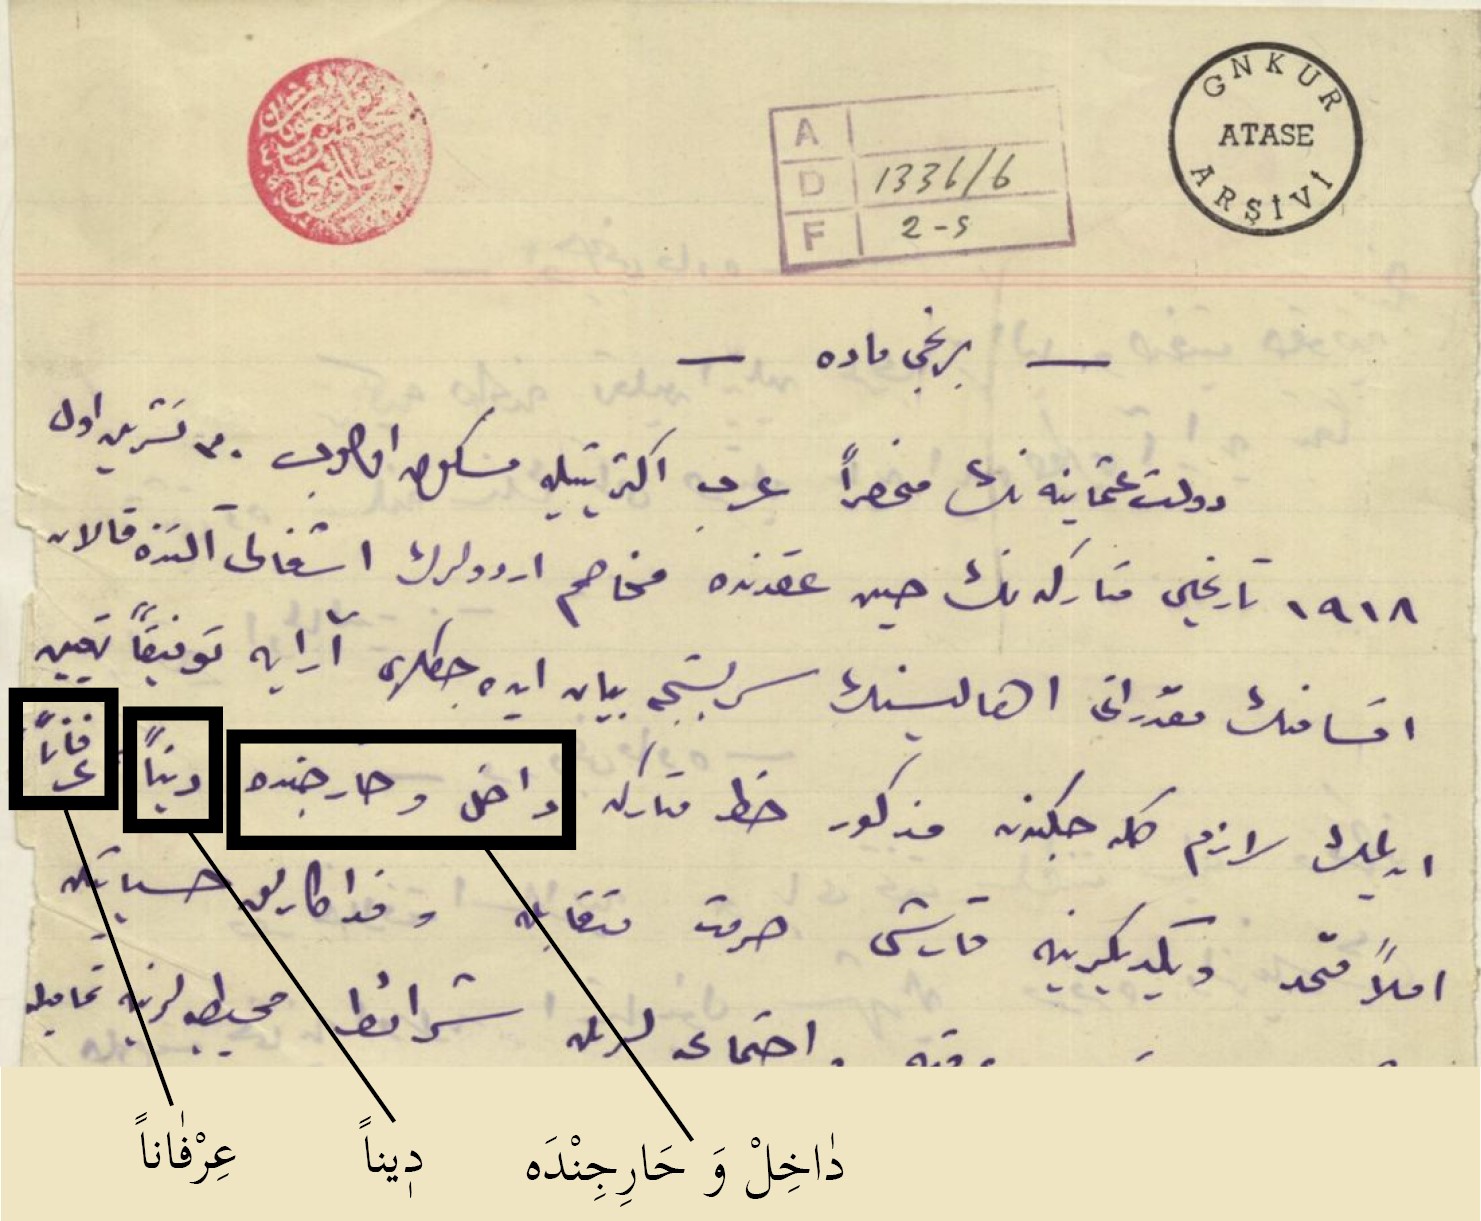 GNKUR
ATASE
ARŞİVİ
A
D 1336/6
F 2-5
— برنجی ماده —
دولت عثمانیه نك منحصراً عرب اکثریتیله مسکون اولوب ٣٠ تشرین اول
١٩١٨ تاریخلی متارکه نك حین عقدنده مخاصم اردولرك اشغالی آلتنده قالان
اقسامنك مقدّراتی اهالیسنك سربستجه بیان ایده جکلری آرایه توفیقاً تعیین
ایدلمك لازم کله جکندن مذکور خط متارکه داخل و حارجنده دیناً عرفاناً
املاً متّحد و یکدیکرینه قارشی حرمت متقابله و فداکارلق حسیاتیله
اجتماعیه لریله شرائط محیطیه لرینه تمامیله
دٰاخِلْ وَ حَارِجِنْدَه
دٖیناً
عِرْفٰاناً